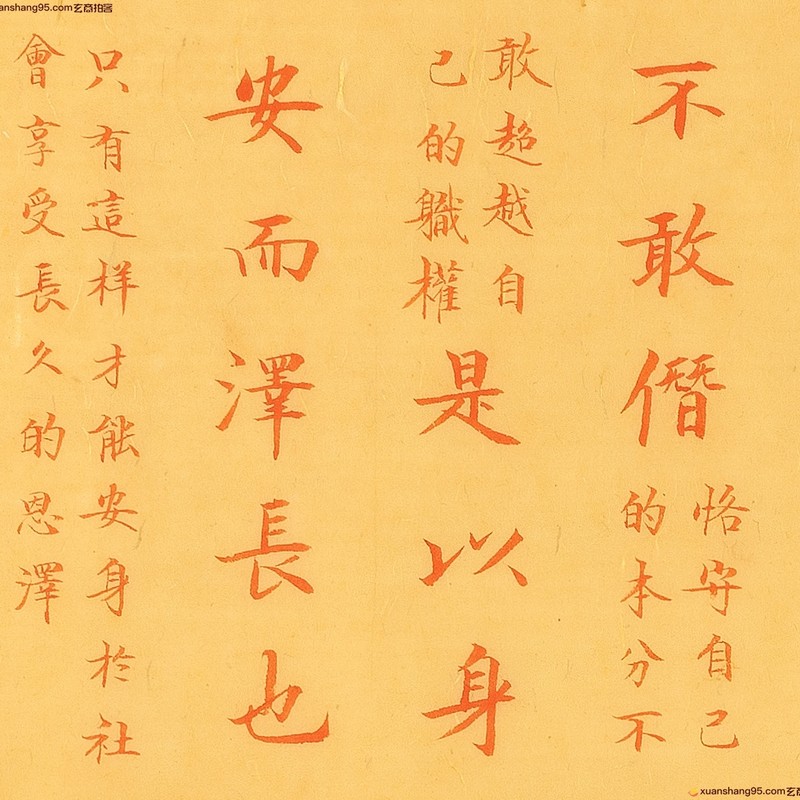 不敢僭
恪守自己
的本分不
敢超越自
己的職權
是以身
安而澤長也
只有這样才能安身於社
會享受長久的恩澤
anshang95.com玄商拍客
xuanshang95.com玄商